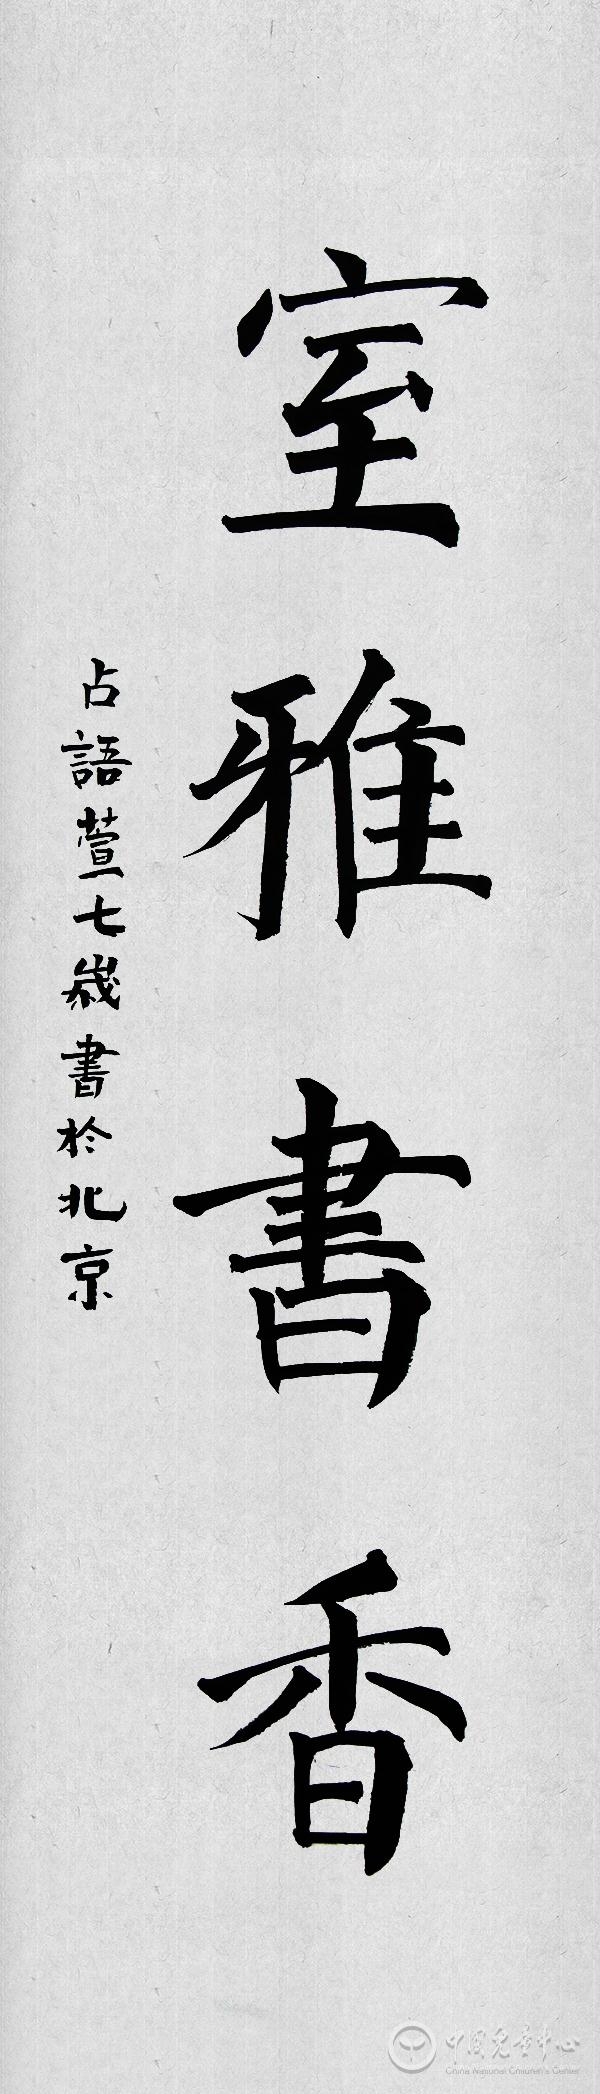 室雅書香
占語萱七歲書於北京
中国儿童中心
China National Children's Center